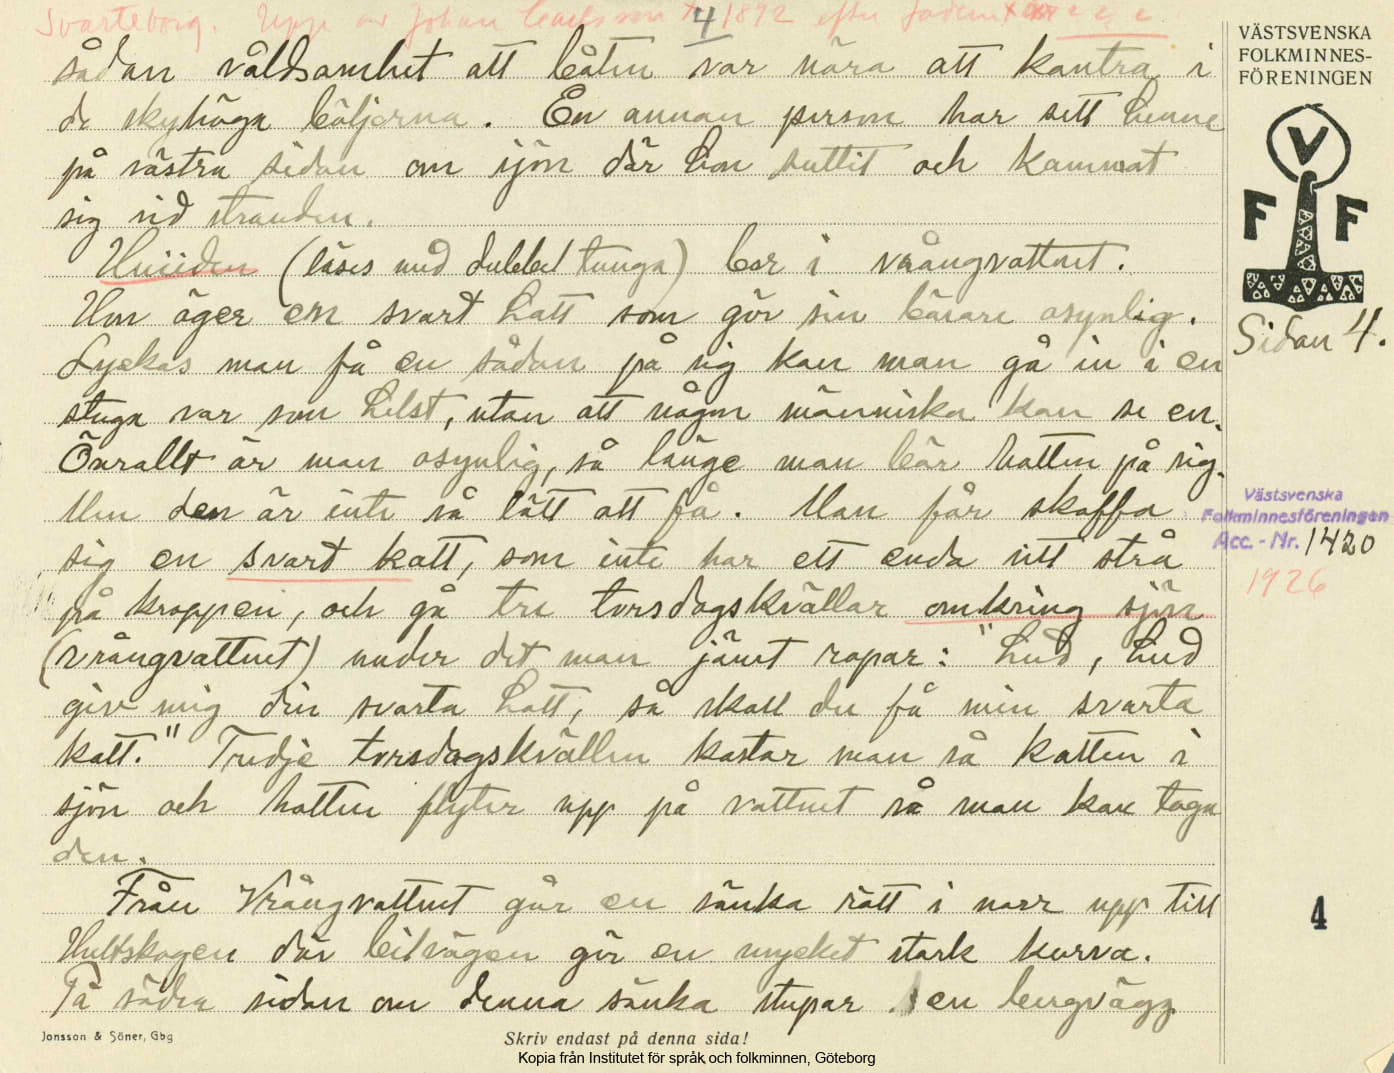 Svarteborg. Uppt. av Johan Carlsson f. 4/ 1892 efter fadern
sådan våldsamhet att båten var nära att kantra i
de skyhöga böljorna. En annan person har sett henne
på västra sidan om sjön där hon suttit och kammat
sig vid stranden.
(läses med dubbel tunga) bor i vrångvattnet.
Hon äger en svart hatt som gör sin bärare osynlig.
Lyckas man få en sådan på sig kan man gå in i en
stuga var som helst, utan att någon människa kan se en.
Överallt är man osynlig, så länge man bär hatten på sig.
Men den är inte så lätt att få. Man får skaffa
sig en svart katt, som inte har ett enda vitt strå
på kroppen, och gå tre torsdagskvällar omkring sjön
(vrångvattnet) under det man jämt ropar: "Hud, Hud
giv mig din svarta hatt, så skall du få min svarta
katt." Tredje torsdagskvällen kastar man så katten i
sjön och hatten flyter upp på vattnet så man kan taga
den.
Från Vrångvattnet går en sänka rätt i norr upp till
Hultskogen där bilvägen gör en mycket stark kurva.
På södra sidan om denna sänka stupar en bergvägg
Jonsson & Söner, Gbg
Skriv endast på denna sida!
Kopia från Institutet för språk och folkminnen, Göteborg
VÄSTSVENSKA
FOLKMINNES-
FÖRENINGEN
V
F F
Sidan 4.
Västsvenska
Folkminnesföreningen
Acc. - Nr. 1420
1926
4